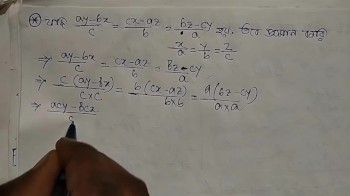 ⊛ যদি (ay-bx)/c = (cx-az)/b = (bz-cy)/a হয়, তবে প্রমাণ করি
x/a = y/b = z/c
⇒ (ay-bx)/c = (cx-az)/b = (bz-cy)/a
⇒ c(ay-bx)/(c×c) = b(cx-az)/(b×b) = a(bz-cy)/(a×a)
⇒ (acy-bcx)/c